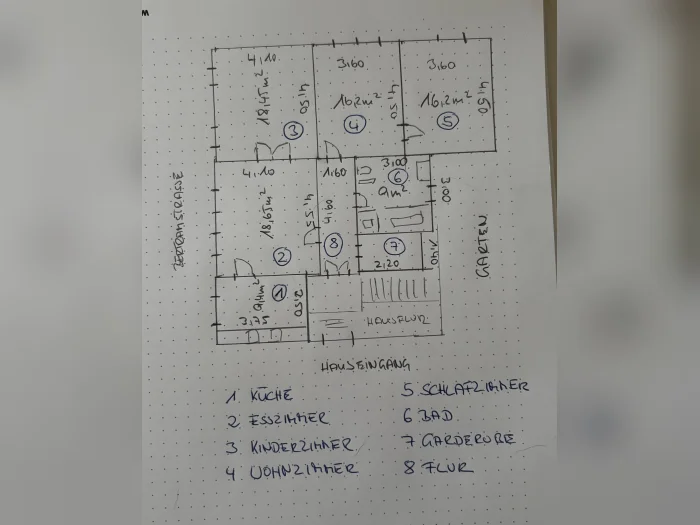 4,10
18,45m²
4,50
3
3,60
16,2m²
4,50
4
3,60
16,2m²
4,50
5
4,10
18,65m²
4,55
2
1,60
4,60
8
3,00
6
9m²
3,00
7
2,20
1,40
1
9,4m²
3,75
2,50
HAUSFLUR
GARTEN
HAUSEINGANG
1 KÜCHE
2 ESSZIMMER
3 KINDERZIMMER
4 WOHNZIMMER
5 SCHLAFZIMMER
6 BAD
7 GARDEROBE
8 FLUR